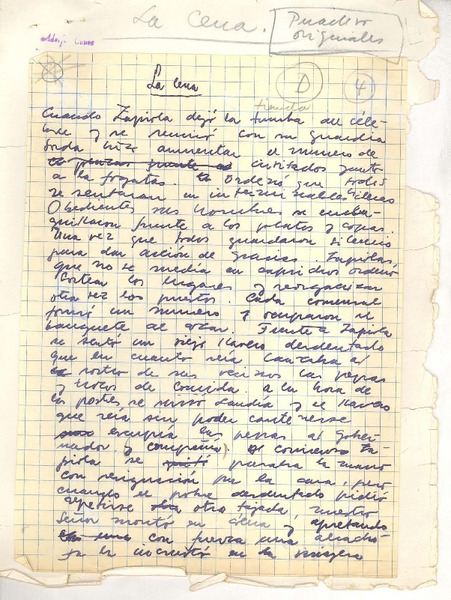 La Cena.
Pruebas
originales
La Cena
D
4
Cuando Zapiola dejó la tumba de céle-
bre y se reunió con su guardia
hizo aumentar el número de
invitados junto
a la fogatas. Ordenó que todos
se sentaran en
Obedientes sus hombres se
frente a los platos y copas.
Una vez que todos guardaron silencio
para dar acción de gracias. Zapiola
que no se medía en caprichos ordenó
sortear los lugares y reorganizar
otra vez los puestos. Cada comensal
formó un número y ocuparon el
banquete al azar. Frente a Zapiola
se sentó un viejo llavero desdentado
que en cuanto reía lanzaba al
rostro de sus vecinos las pepas
y trozos de comida. A la hora de
los postres se sirvió sandía y el llavero
que reía sin poder contenerse
escupía las pepas al Gober-
nador y compañía. Al comienzo Za-
piola se pasaba la mano
con resignación por la cara, pero
cuando el pobre desdentado pidió
repetirse otra tajada, nuestro
señor montó en cólera y apretando
con fuerza una
se la incrustó en la